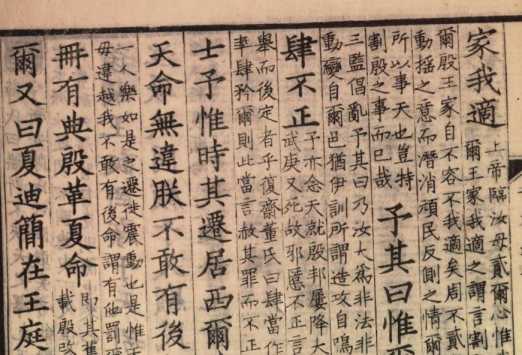 家我適
上帝臨汝毋貳爾心惟
爾王家我適之謂言割
爾殷王家自不容不我適矣周不貳
動揺之意而潛消頑民反側之情爾
所以事天也豈特
割殷之事而已哉
予其曰惟
三監倡亂予其曰乃汝大爲非法非
動變自爾邑猶伊訓所謂造攻自鳴
肆不正
予亦念天就殷邦屢降大
武庚又死故邪慝不正言
舉而後定者乎復齋董氏曰肆當作
率肆矜爾則此當言赦其罪而不正
士予惟時其遷居西爾
天命無違朕不敢有後
一人樂如是之遷徙震動也是惟
毋違越我不敢有後命謂有他罰爾
冊有典殷革夏命
即其舊
載殷改
爾又曰夏迪簡在王庭